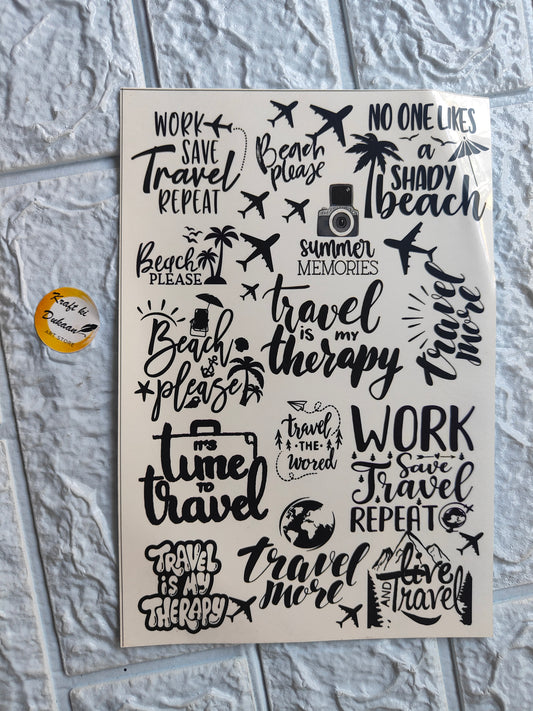 WORK
SAVE
Travel
REPEAT
Beach
please
NO ONE LIKES
a
SHADY
beach
Beach
PLEASE
summer
MEMORIES
travel
is my
therapy
travel
more
Kraft ki
Dukaan
ART STORE
Beach
please
IT'S
time
TO
travel
travel
·THE·
Wored
WORK
Save
Travel
REPEAT
TRAVEL
IS MY
THERAPY
travel
more
live
AND
travel